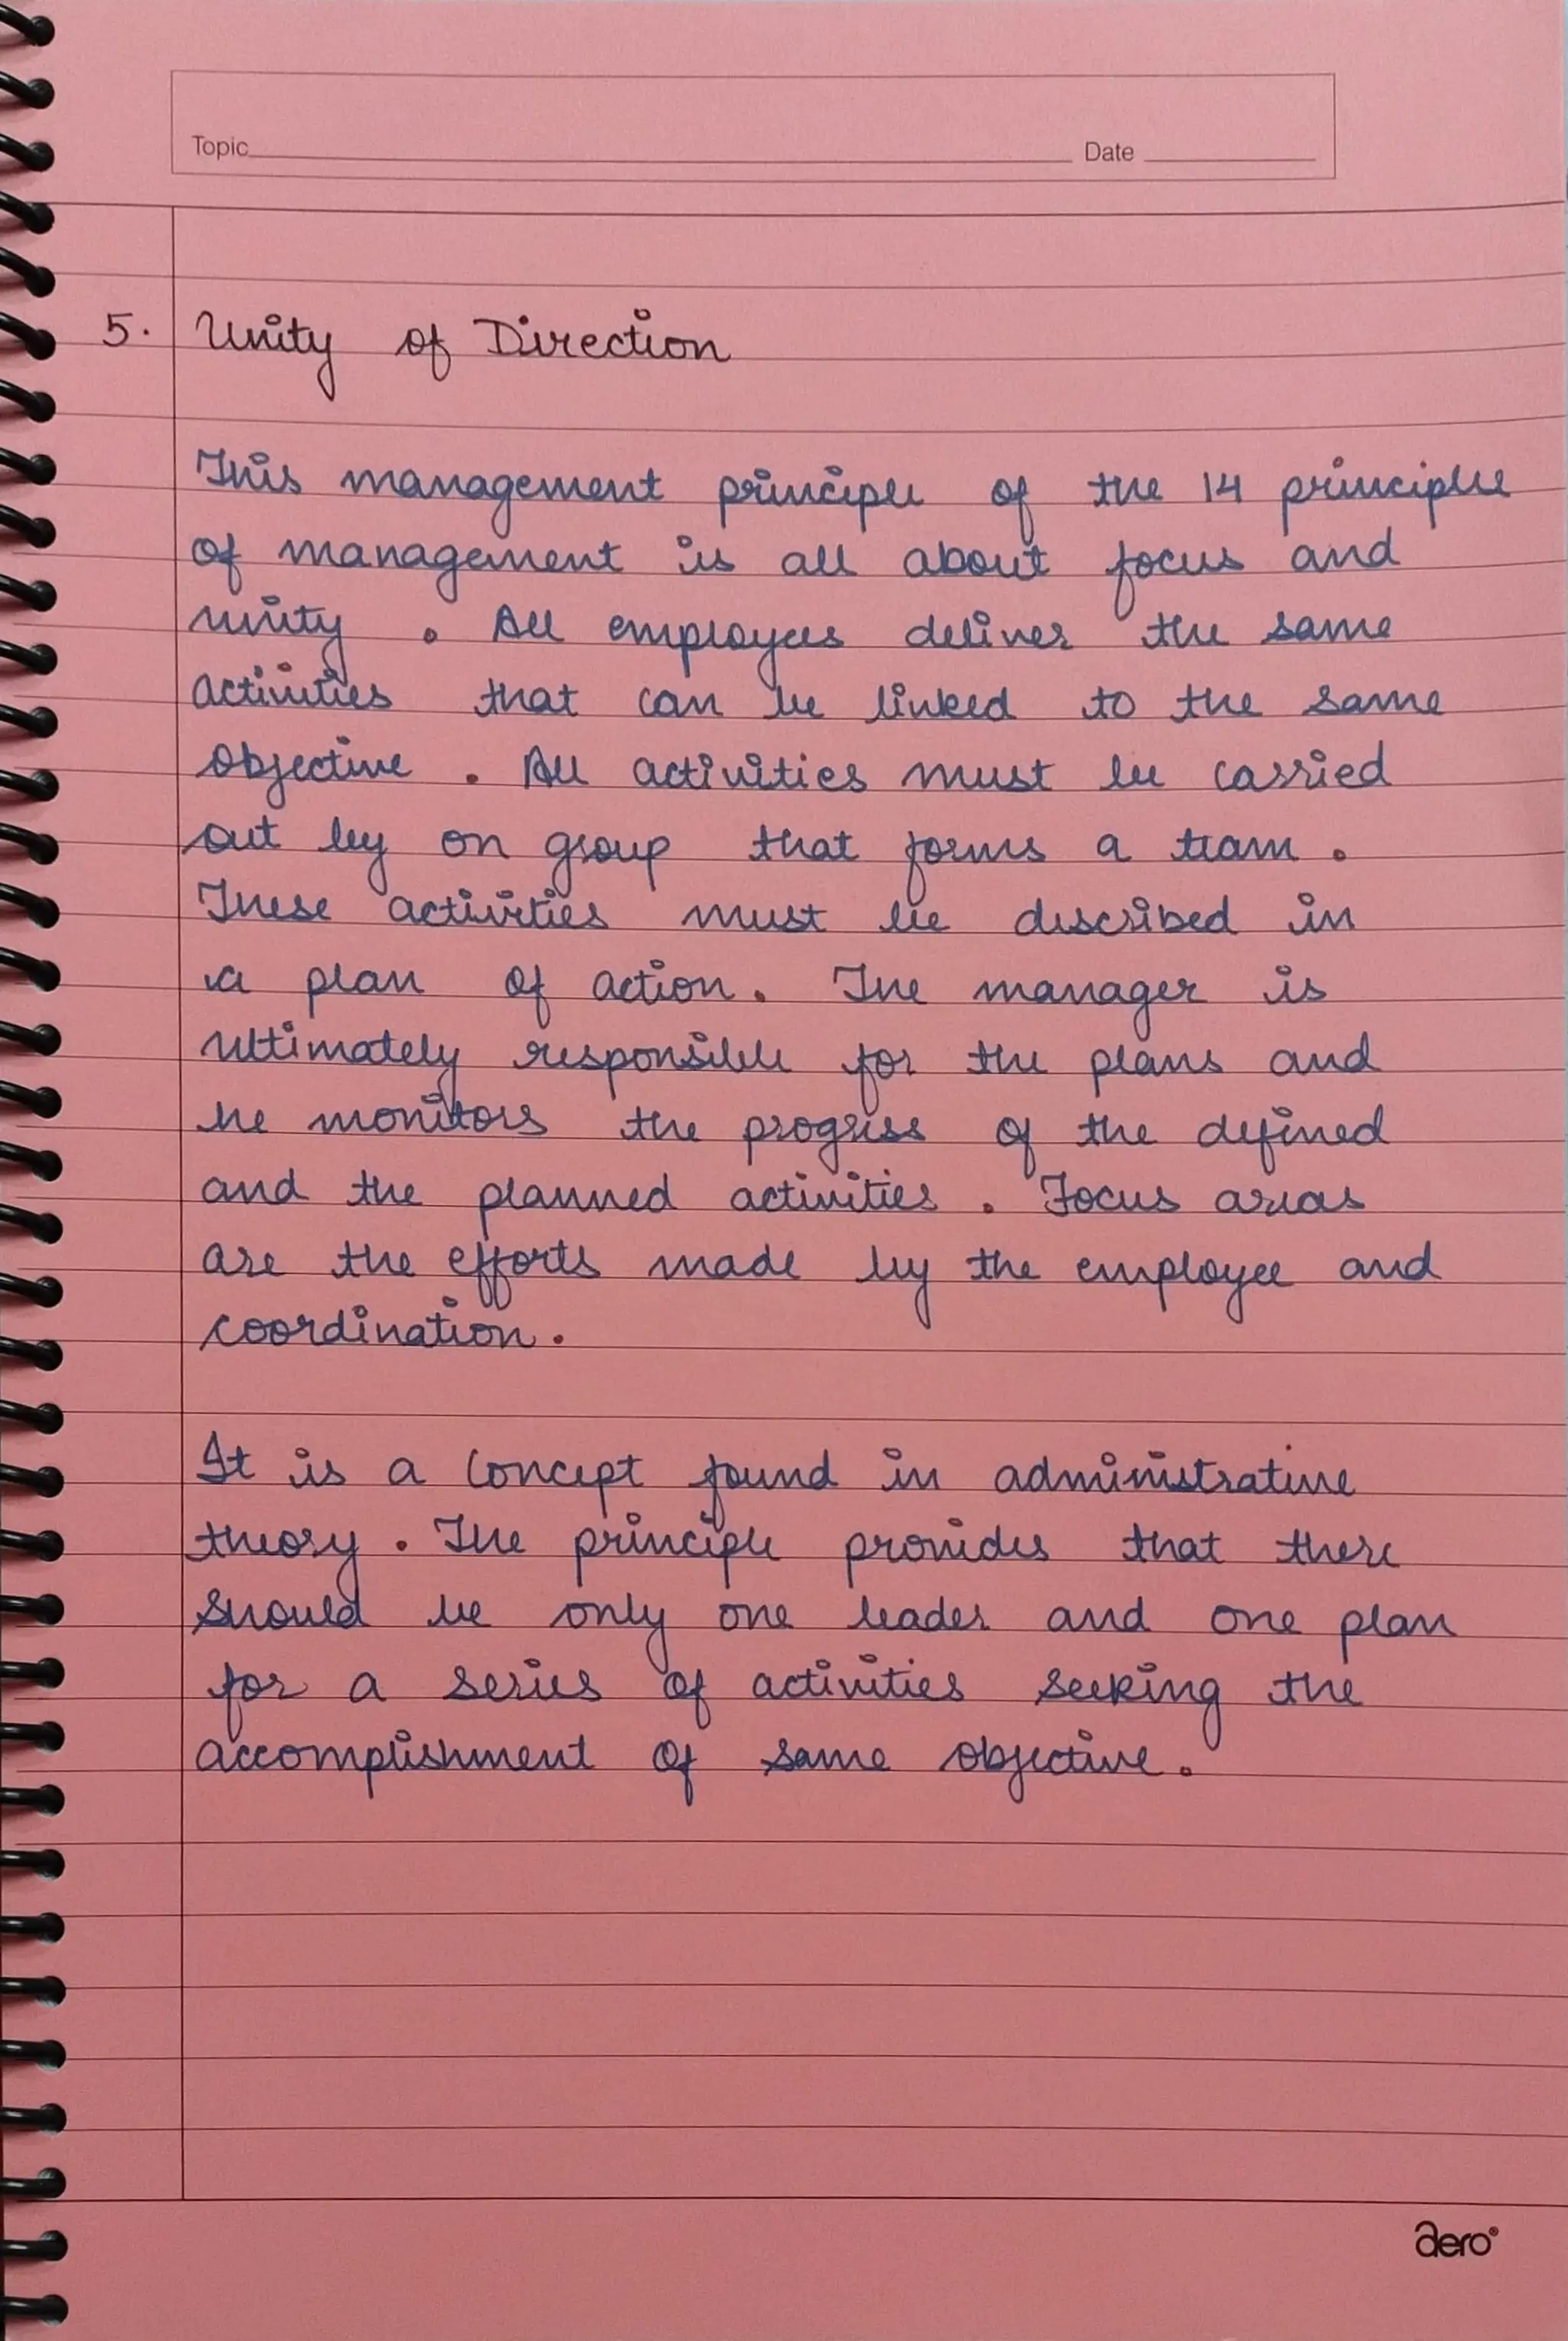 Topic Date
5. Unity of Direction
This management principle of the 14 principle
of management is all about focus and
unity. All employees deliver the same
activities that can be linked to the same
objective. All activities must be carried
out by on group that forms a team.
These activities must be described in
a plan of action. The manager is
ultimately responsible for the plans and
he monitors the progress of the defined
and the planned activities. Focus areas
are the efforts made by the employee and
coordination.
It is a concept found in administrative
theory. The principle provides that there
should be only one leader and one plan
for a series of activities seeking the
accomplishment of same objective.
aero